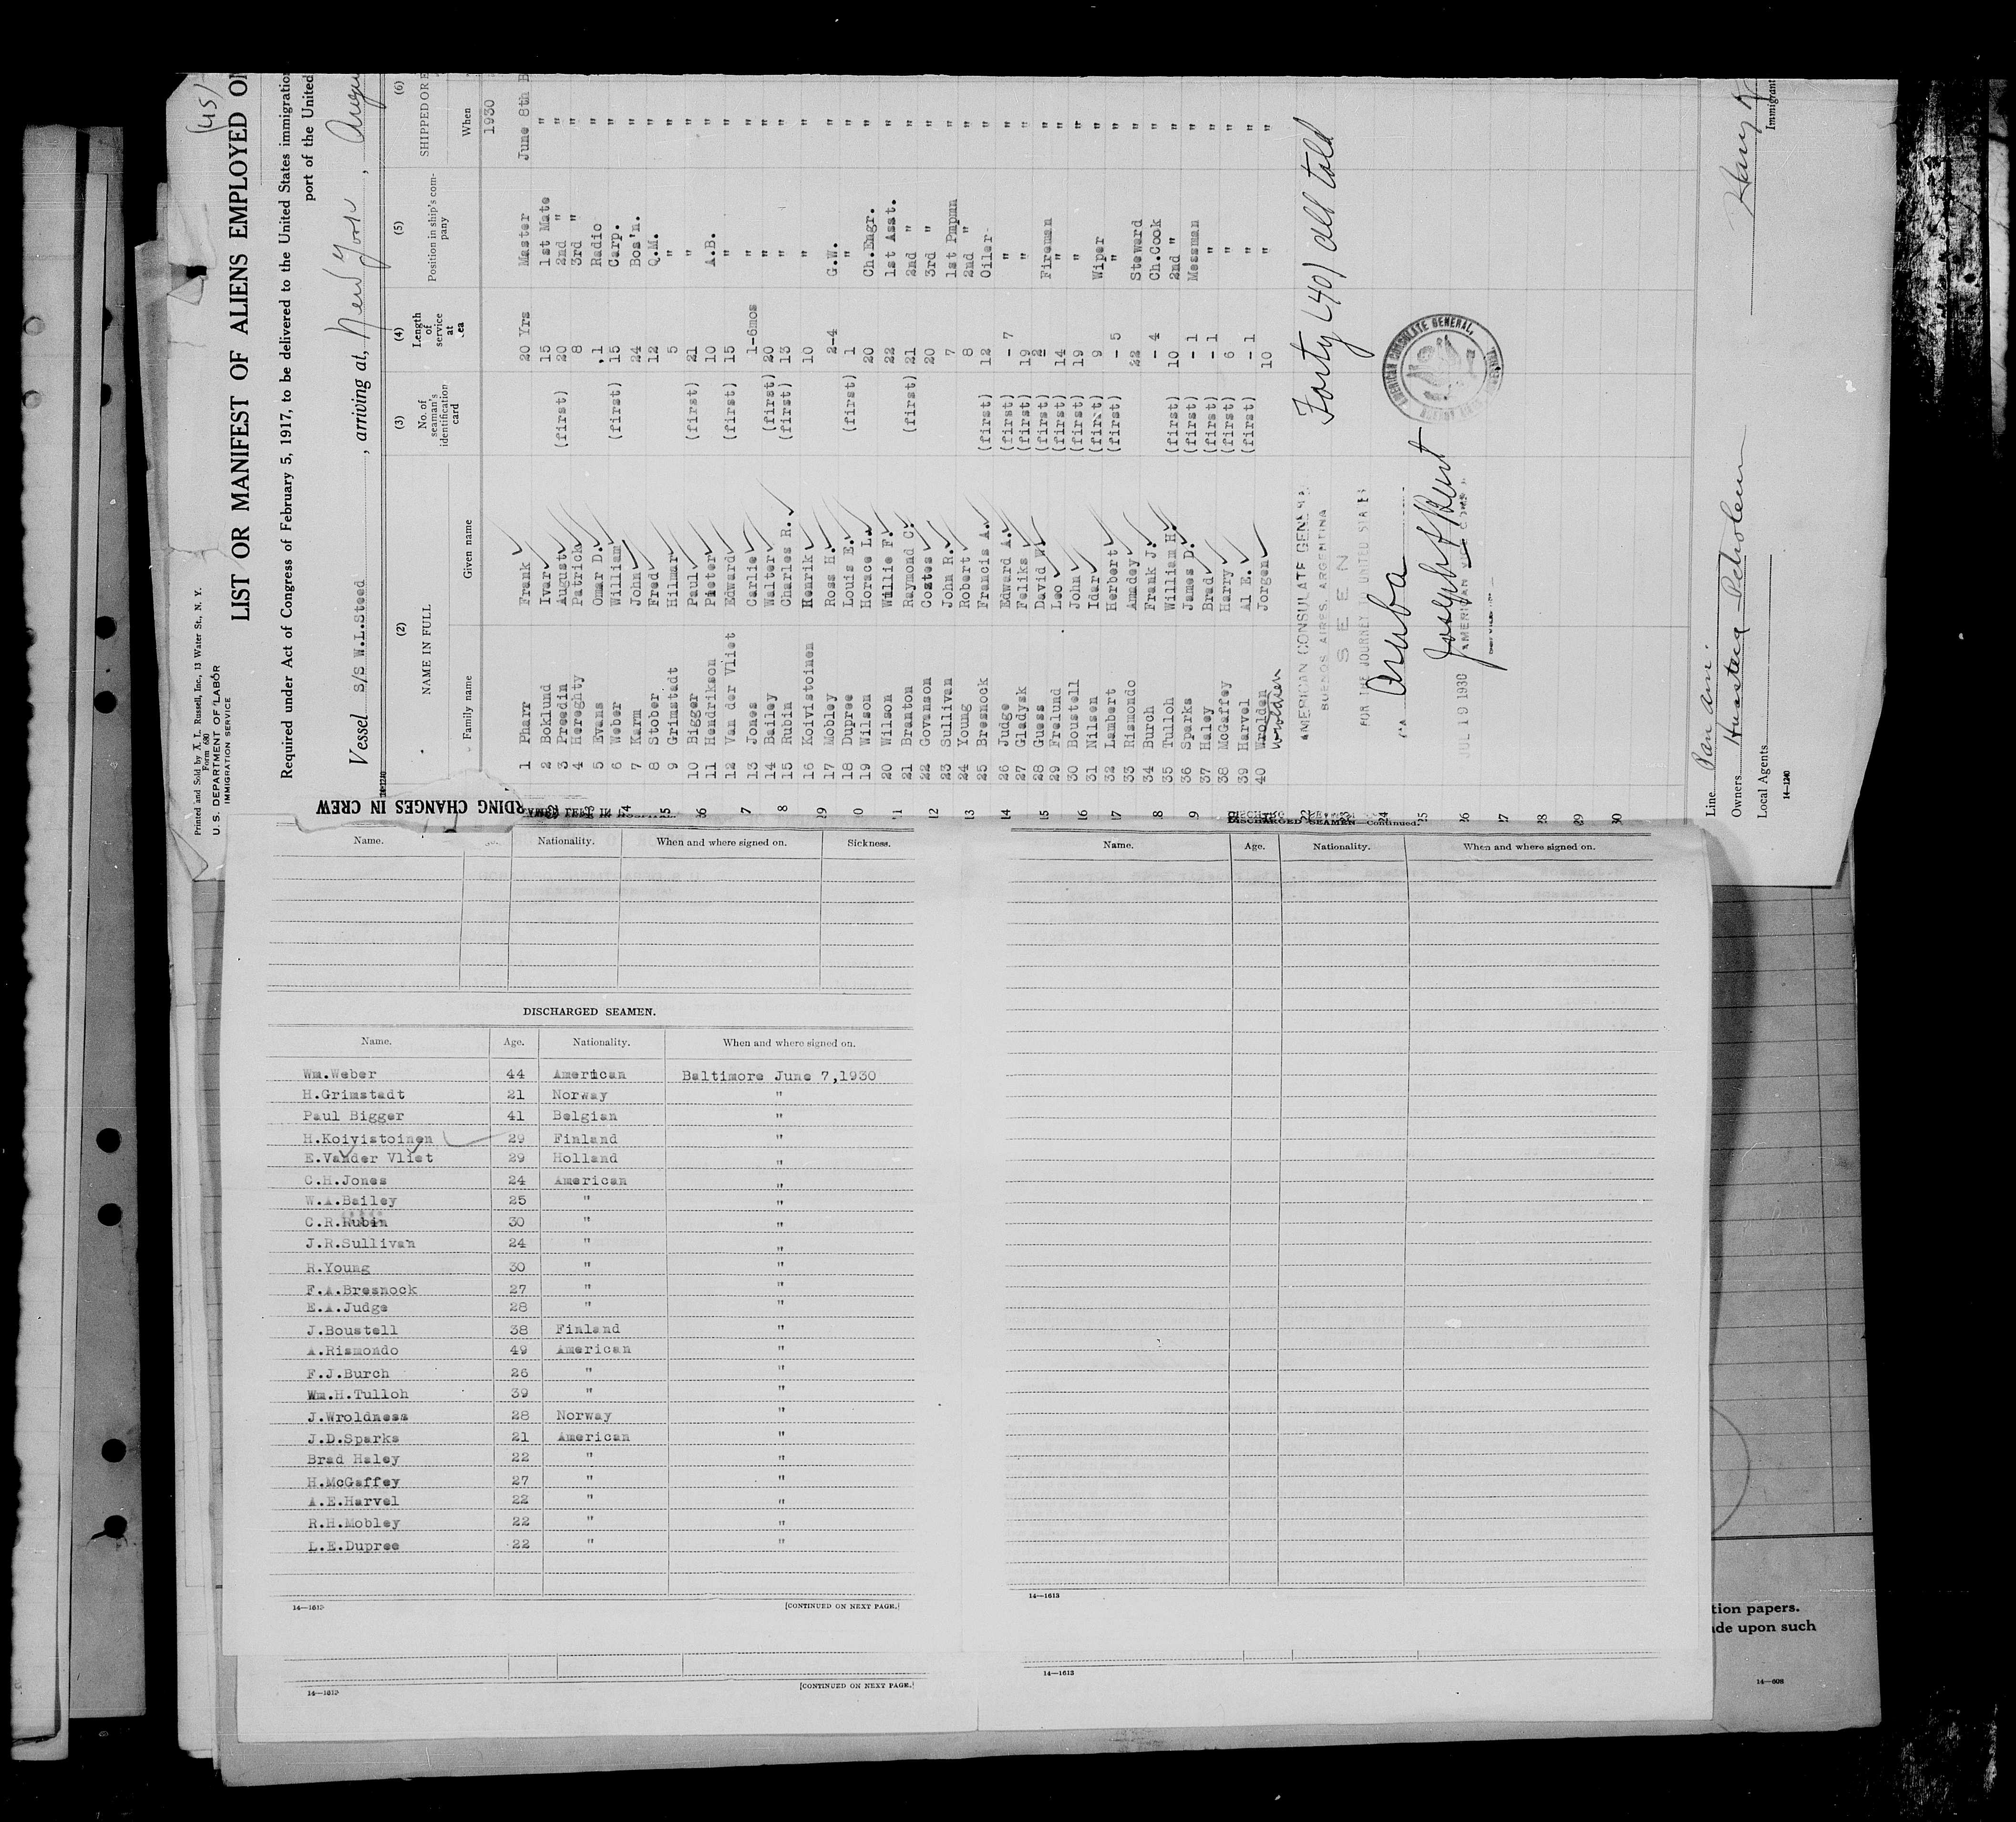 (45)
Printed and Sold by A. L. Russell, Inc., 13 Water St., N. Y.
Form 680
U. S. DEPARTMENT OF LABOR
IMMIGRATION SERVICE
LIST OR MANIFEST OF ALIENS EMPLOYED ON
Required under Act of Congress of February 5, 1917, to be delivered to the United States immigration
port of the United
Vessel S/S W.L.Steed, arriving at, New York,
(2) (3) (4) (5) (6)
NAME IN FULL No. of seaman's identification card Length of service at sea Position in ship's company SHIPPED OR E
Family name Given name When
1930
1 Pharr Frank 20 Yrs Master June 8th B
2 Boklund Ivar 15 1st Mate "
3 Preedin August (first) 20 2nd " "
4 Hereghty Patrick 8 3rd " "
5 Evans Omar D. 1 Radio "
6 Weber William (first) 15 Carp. "
7 Karm John 24 Bos'n. "
8 Stober Fred 12 Q.M. "
9 Grimstadt Hilmar 5 " "
10 Bigger Paul (first) 21 " "
11 Hendrikson Pieter 10 A.B. "
12 Van der Vliet Edward (first) 15 " "
13 Jones Carlie 1-6mos " "
14 Bailey Walter (first) 20 " "
15 Rubin Charles R. (first) 13 " "
16 Koivistoinen Henrik 10 " "
17 Mobley Ross H. 2-4 G.W. "
18 Dupree Louis E. (first) 1 " "
19 Wilson Horace L. 20 Ch.Engr. "
20 Wilson Willie F. 22 1st Asst. "
21 Branton Raymond C. (first) 21 2nd " "
22 Covanson Coates 20 3rd " "
23 Sullivan John R. 7 1st Pmpmn "
24 Young Robert 8 2nd " "
25 Bresnock Francis A. (first) 12 Oiler "
26 Judge Edward A. (first) - 7 " "
27 Gladysk Feliks (first) 19 " "
28 Guess David W. (first) 2 Fireman "
29 Frelund Leo (first) 14 " "
30 Boustell John (first) 19 " "
31 Nilsen Idar (first) 9 Wiper "
32 Lambert Herbert (first) - 5 " "
33 Rismondo Amadey 22 Steward "
34 Burch Frank J. - 4 Ch.Cook "
35 Tulloh William H. (first) 10 2nd " "
36 Sparks James D. (first) - 1 Messman "
37 Haley Brad (first) - 1 " "
38 McGaffey Harry (first) 6 " "
39 Harvel Al E. (first) - 1 " "
40 Wrolden Jorgen 10 " "
Wroldsen
AMERICAN CONSULATE GENERAL
BUENOS AIRES, ARGENTINA
SEEN
FOR THE JOURNEY TO UNITED STATES
Aruba
JUL 19 1930
AMERICAN VICE CONSUL
Forty (40) all told
AMERICAN CONSULATE GENERAL,
Line Pan Am.
Owners Huasteca Petroleum
Local Agents
14-1240
Immigrant
RDING CHANGES IN CREW
Name. Nationality. When and where signed on. Sickness.
DISCHARGED SEAMEN.
Name. Age. Nationality. When and where signed on.
Wm.Weber 44 American Baltimore June 7,1930
H.Grimstadt 21 Norway "
Paul Bigger 41 Belgian "
H.Koivistoinen 29 Finland "
E.Vander Vliet 29 Holland "
C.H.Jones 24 American "
W.A.Bailey 25 " "
C.R.Rubin 30 " "
J.R.Sullivan 24 " "
R.Young 30 " "
F.A.Bresnock 27 " "
E.A.Judge 28 " "
J.Boustell 38 Finland "
A.Rismondo 49 American "
F.J.Burch 26 " "
Wm.H.Tulloh 39 " "
J.Wroldness 28 Norway "
J.D.Sparks 21 American "
Brad Haley 22 " "
H.McGaffey 27 " "
A.E.Harvel 22 " "
R.H.Mobley 22 " "
L.E.Dupree 22 " "
14—1613 [CONTINUED ON NEXT PAGE.]
14—1613 [CONTINUED ON NEXT PAGE.]
DISCHARGED SEAMEN—Continued.
Name. Age. Nationality. When and where signed on.
14—1613
14—1613
tion papers.
de upon such
14—608